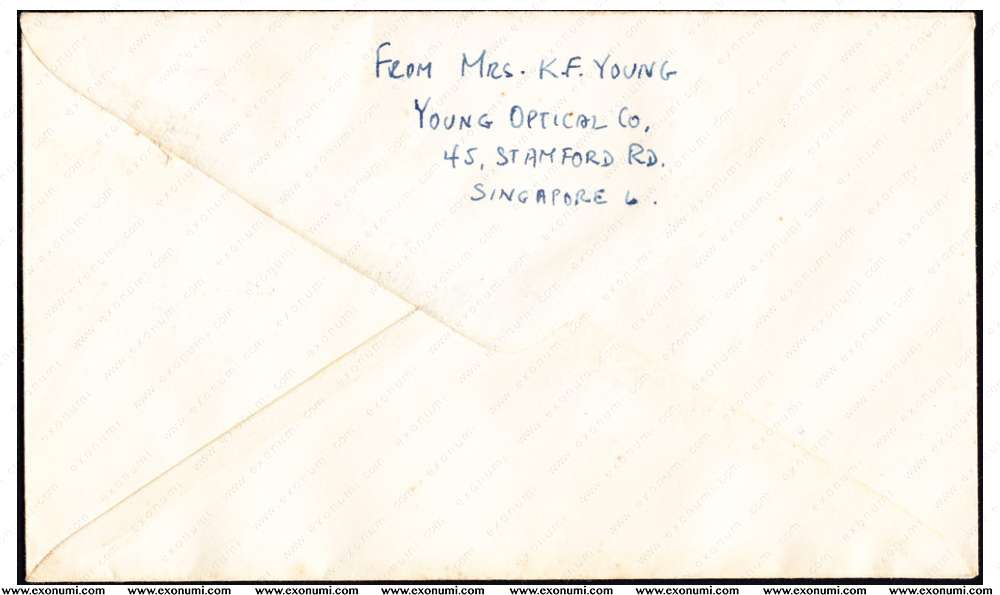 From Mrs. K.F. Young
Young Optical Co,
45, Stamford Rd.
Singapore 6.
www.exonumi.com www.exonumi.com www.exonumi.com www.exonumi.com www.exonumi.com www.exonumi.com www.exonumi.com www.exonumi.com